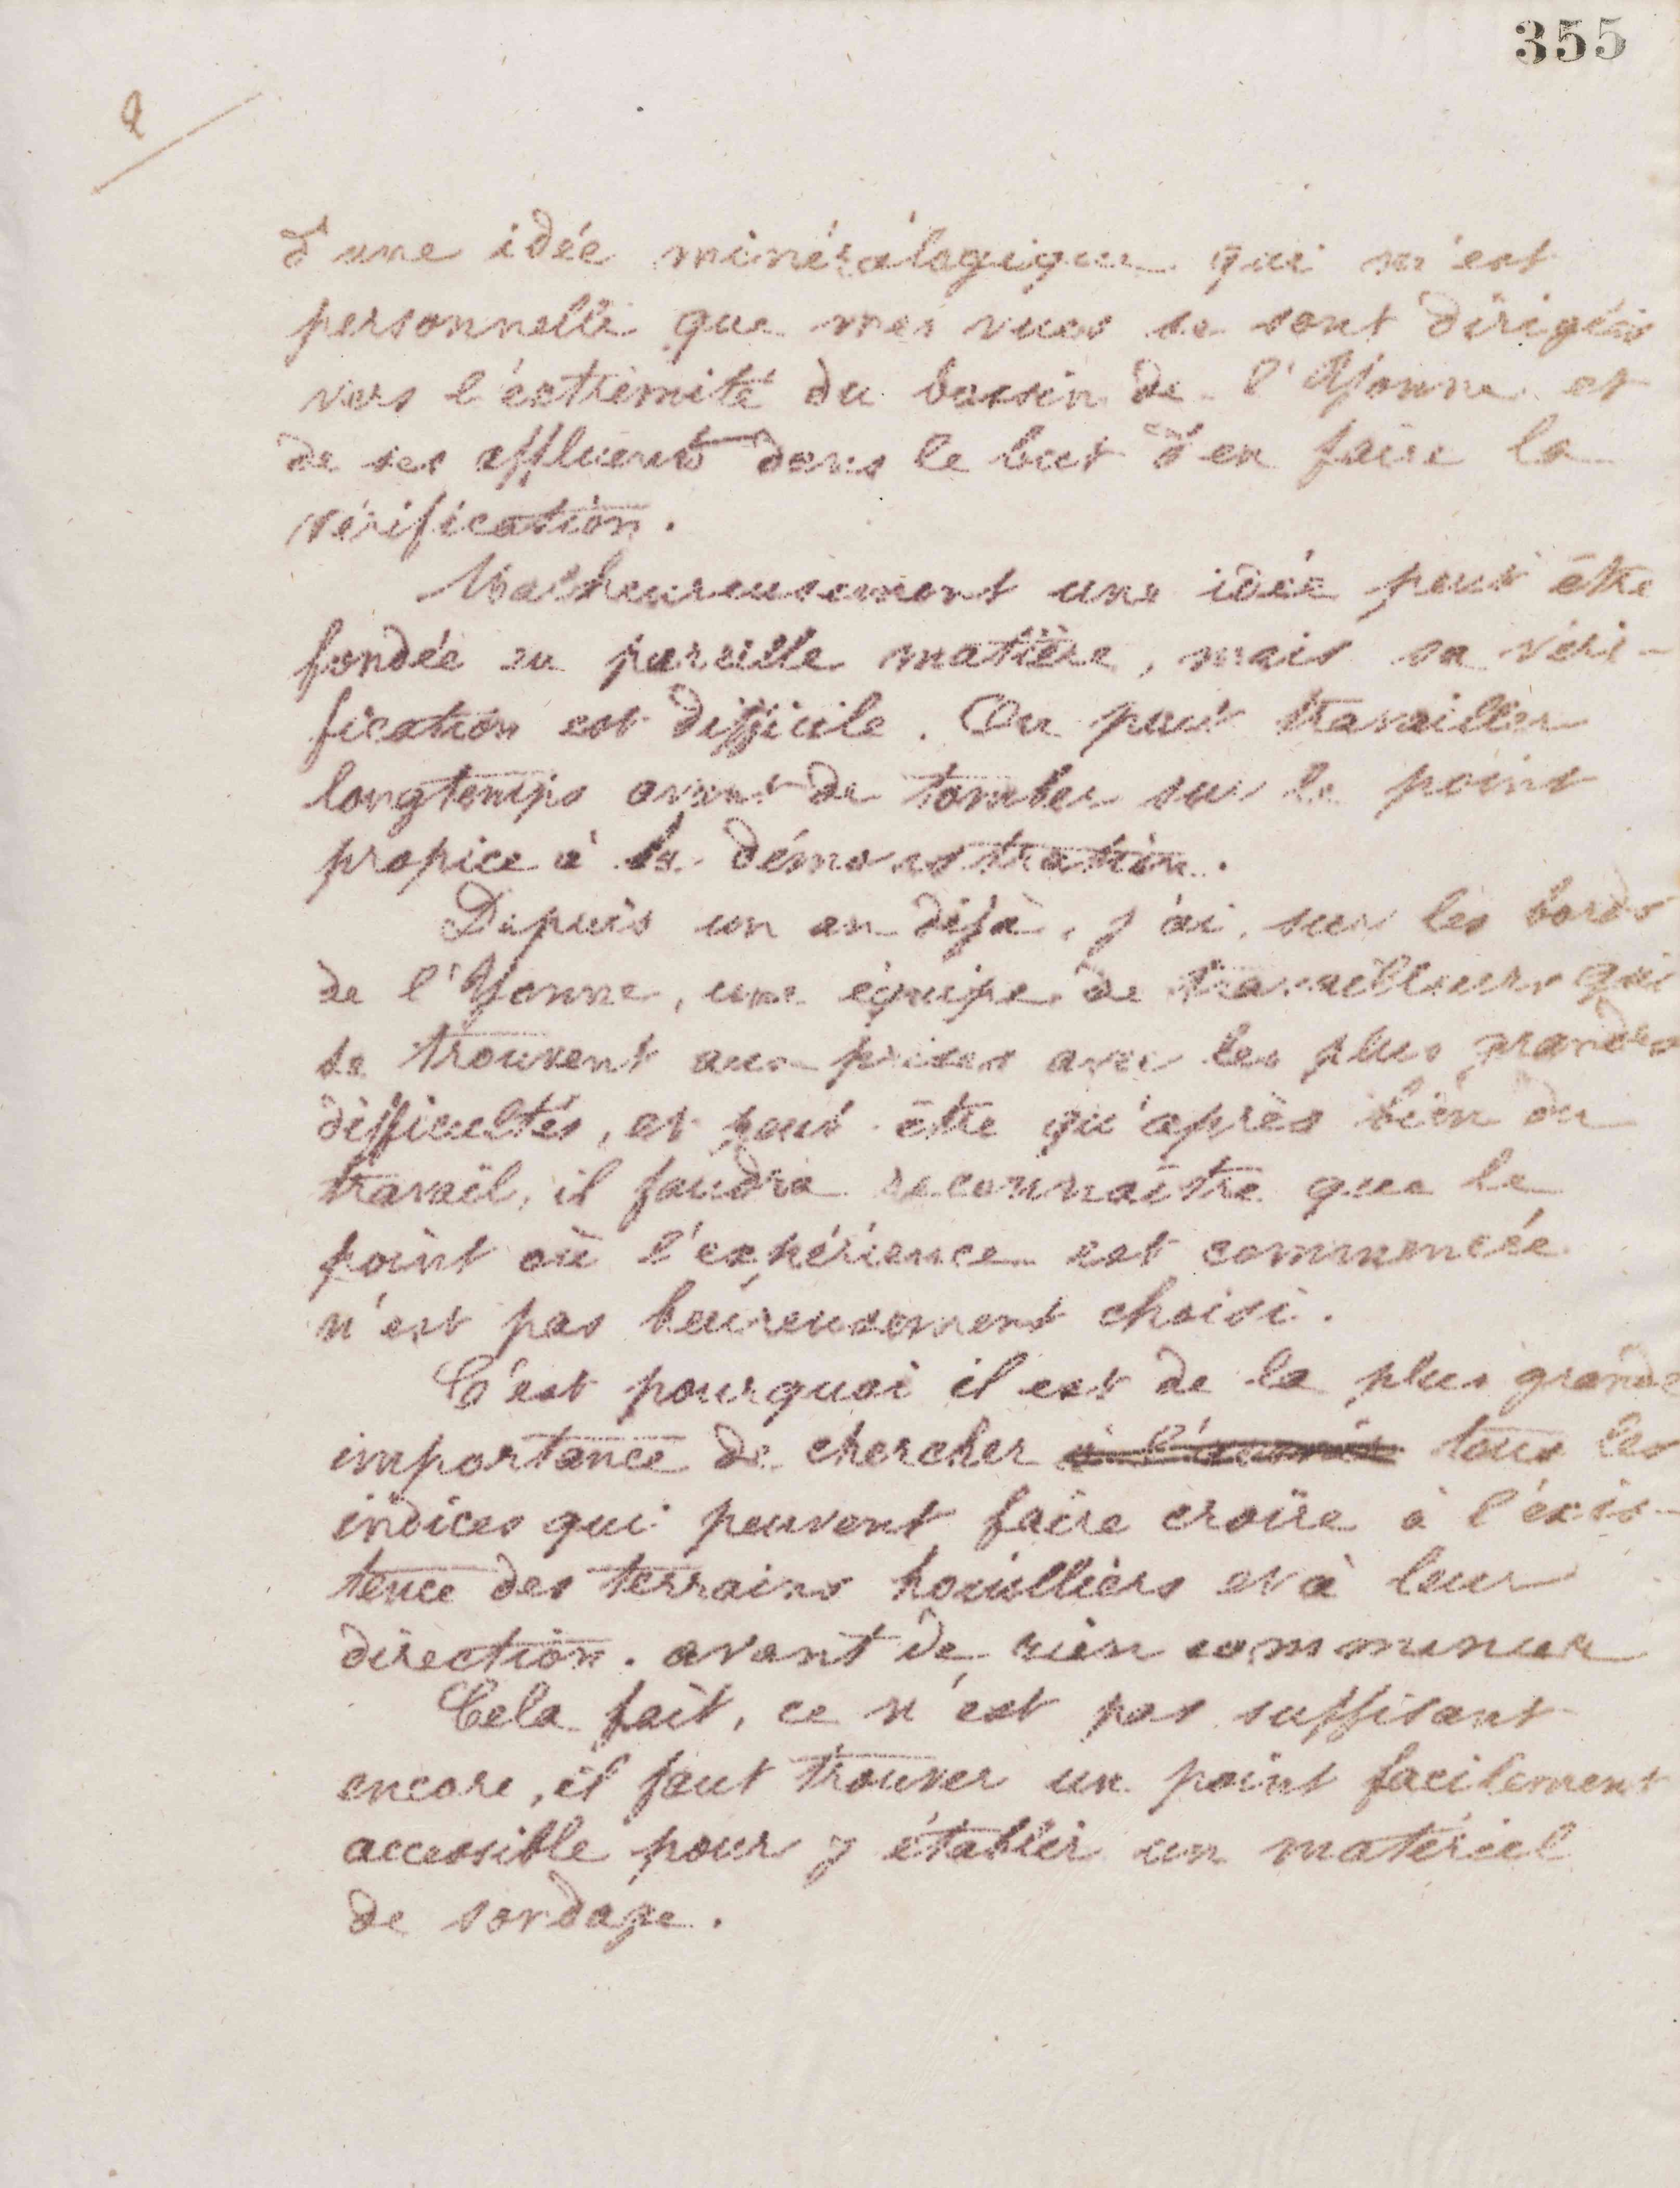 355
2
d'une idée minéralogique qui m'est
personnelle que mes vues se sont dirigées
vers l'extrêmité du bassin de l'Yonne et
de ses affluents dans le but d'en faire la
vérification.
Malheureusement une idée peut être
fondée en pareille matière, mais sa véri-
fication est difficile. On peut travailler
longtemps avant de tomber sur le point
propice à la démonstration.
Depuis un an déjà, j'ai, sur les bords
de l'Yonne, une équipe de travailleurs qui
se trouvent aux prises avec les plus grandes
difficultés, et peut-être qu'après bien du
travail, il faudra reconnaître que le
point où l'expérience est commencée
n'est pas heureusement choisi.
C'est pourquoi il est de la plus grande
importance de chercher tous les
indices qui peuvent faire croire à l'exis-
tence des terrains houilliers et à leur
direction. avant de rien commencer
Cela fait, ce n'est pas suffisant
encore, il faut trouver un point facilement
accessible pour y établir un matériel
de sondage.